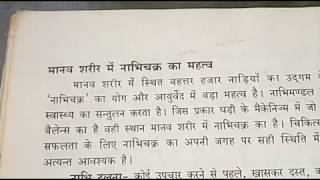 मानव शरीर में नाभिचक्र का महत्व
मानव शरीर में स्थित बहत्तर हजार नाड़ियों का उद्गम
'नाभिचक्र' का योग और आयुर्वेद में बड़ा महत्व है। नाभिमण्डल
स्वास्थ्य का सन्तुलन करता है। जिस प्रकार घड़ी के मैकेनिज्म में जो
बैलेन्स का है वही स्थान मानव शरीर में नाभिचक्र का है। 
सफलता के लिए नाभिचक्र का अपनी जगह पर सही स्थिति में
अत्यन्त आवश्यक है।
नाभि टलना- कोई उपचार करने से पहले, खासकर दस्त,